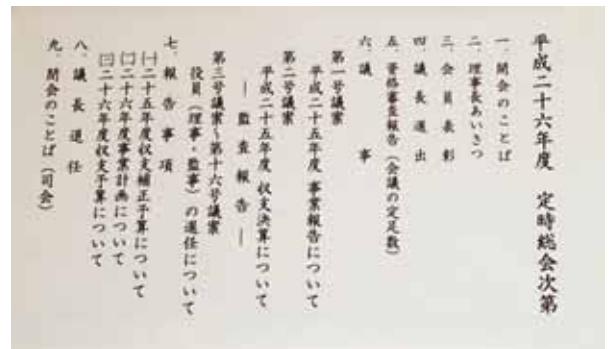 平成二十六年度 定時総会次第
一、開会のことば
二、理事長あいさつ
三、会員表彰
四、議長選出
五、資格審査報告（会議の定足数）
六、議事
第一号議案
平成二十五年度 事業報告について
第二号議案
平成二十五年度 収支決算について
― 監査報告 ―
第三号議案～第十六号議案
役員（理事・監事）の選任について
七、報告事項
㈠二十五年度収支補正予算について
㈡二十六年度事業計画について
㈢二十六年度収支予算について
八、議長退任
九、閉会のことば（司会）